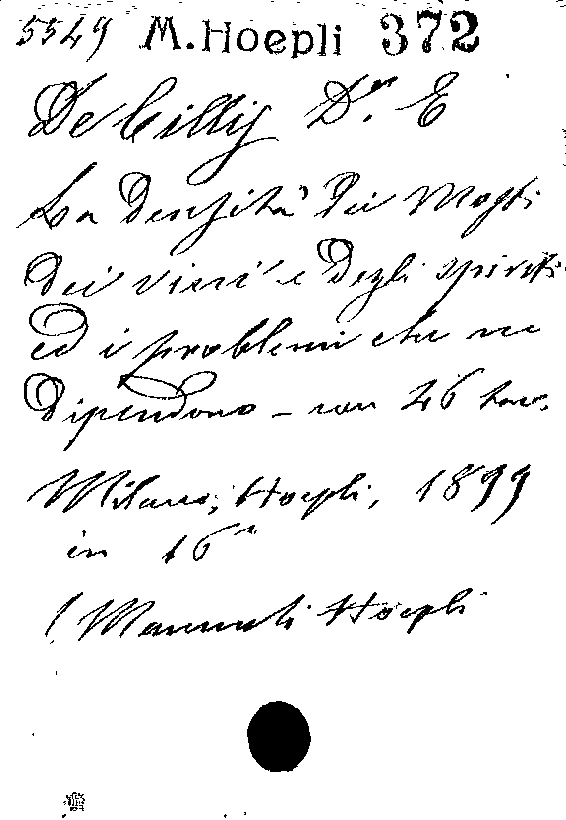 5549 M. Hoepli 372
De Cillis Dr. E
La Densità dei Mosti
dei vini e degli spiriti
ed i problemi che ne
Dipendono - con 46 tav.
Milano, Hoepli, 1899
in 16°
(Manuali Hoepli